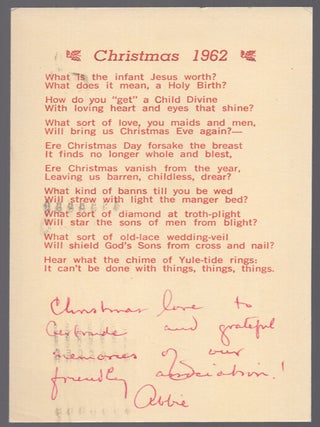 Christmas 1962
What is the infant Jesus worth?
What does it mean, a Holy Birth?
How do you "get" a Child Divine
With loving heart and eyes that shine?
What sort of love, you maids and men,
Will bring us Christmas Eve again?—
Ere Christmas Day forsake the breast
It finds no longer whole and blest,
Ere Christmas vanish from the year,
Leaving us barren, childless, drear?
What kind of banns till you be wed
Will strew with light the manger bed?
What sort of diamond at troth-plight
Will star the sons of men from blight?
What sort of old-lace wedding-veil
Will shield God's Sons from cross and nail?
Hear what the chime of Yule-tide rings:
It can't be done with things, things, things.
Christmas love to
Gertrude and grateful
memories of our
friendly association!
Abbie